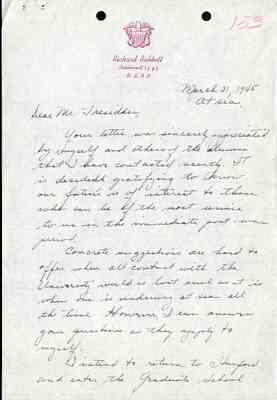 Richard Riddell
Lieutenant (j.g.)
U.S.N.R.
March 21, 1945
At sea.
Dear Mr. Tresidder,
Your letter was sincerely appreciated
by myself and others of the alumni
that I have contacted recently. It
is decidedly gratifying to know
our future is of interest to those
who can be of the most service
to us in the immediate post-war
period.
Concrete suggestions are hard to
offer when all contact with the
University world is lost such as it is
when one is underway at sea all
the time. However, I can answer
your questions as they apply to
myself.
I intend to return to Stanford
and enter the Graduate School